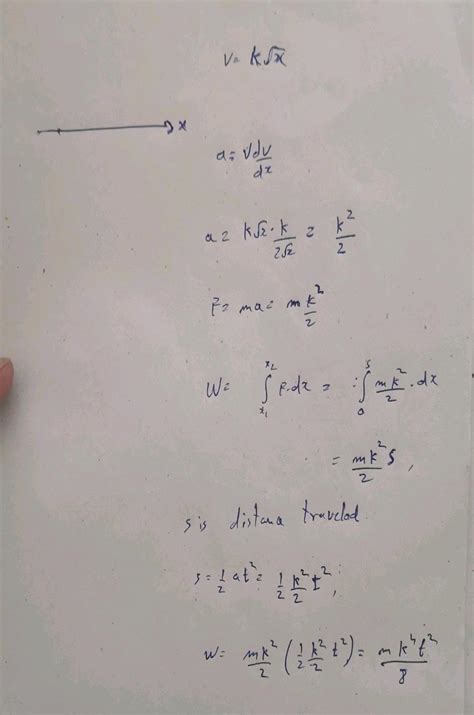 v = k√x
x
a = v dv/dx
a = k√x · k/2√x = k²/2
F = ma = m k²/2
W = ∫_{x₁}^{x₂} F·dx = ∫_{0}^{s} mk²/2 · dx
= mk²/2 s,
s is distana traveled
s = 1/2 at² = 1/2 k²/2 t²,
W = mk²/2 (1/2 k²/2 t²) = mk⁴t²/8